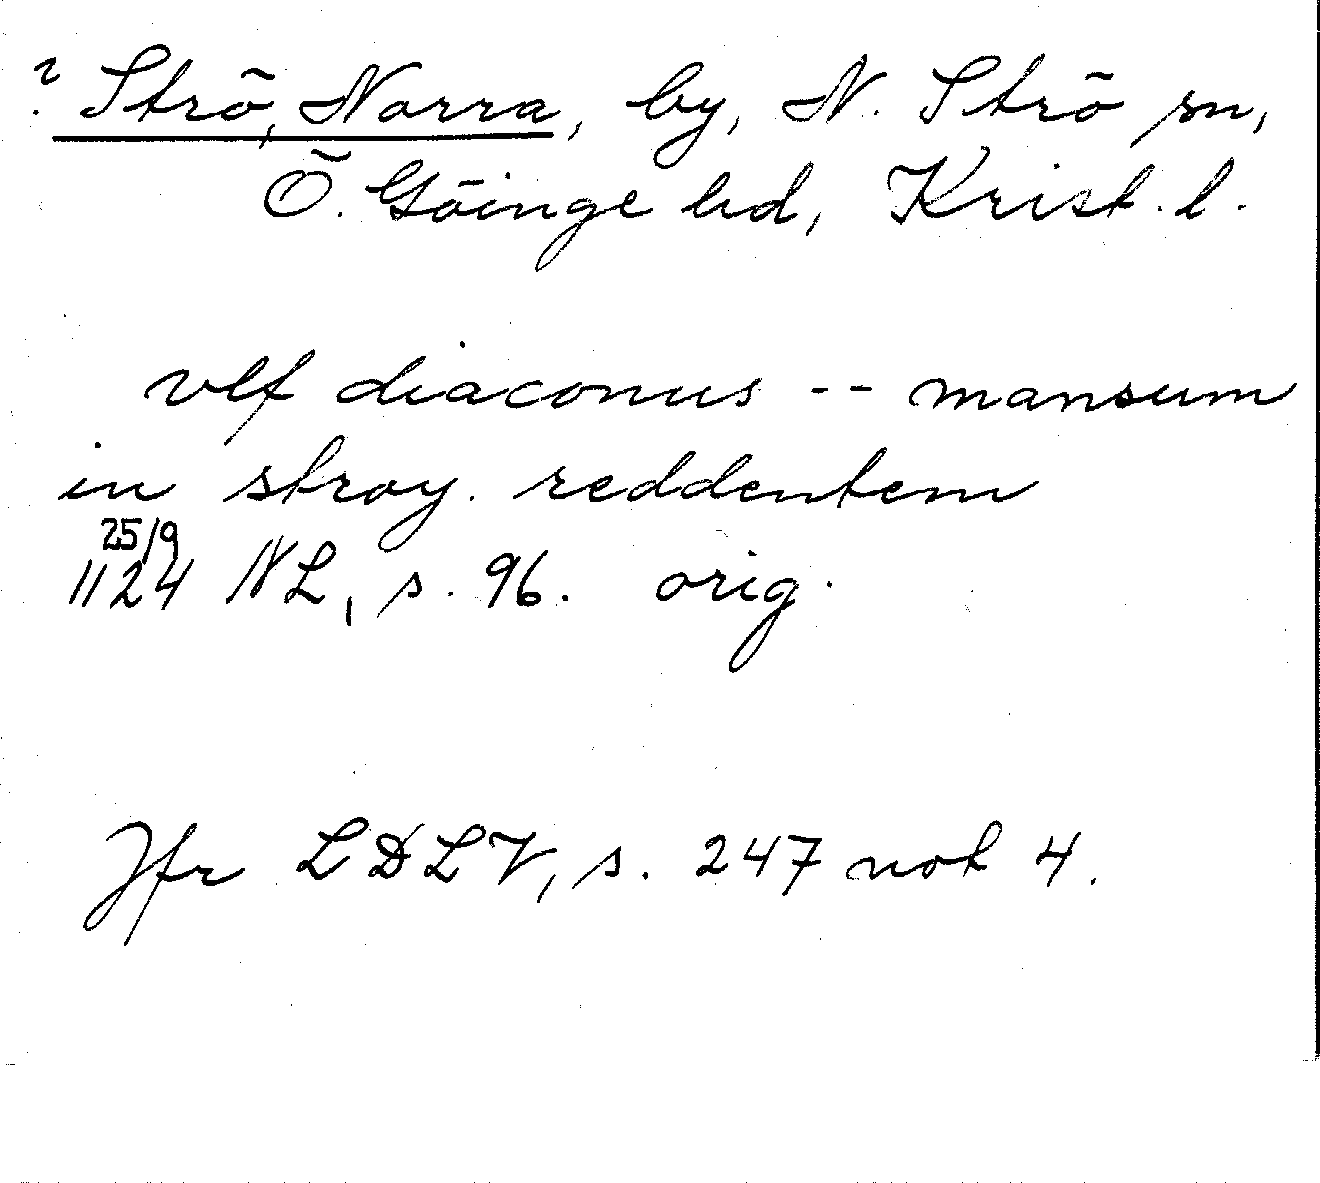 ? Strö, Norra, by, N. Strö sn,
Ö. Göinge hd, Krist. l.
vlf diaconus -- mansum
in stroy. reddentem
25/9
1124 NL, s. 96. orig.
Jfr LDLV, s. 247 not 4.